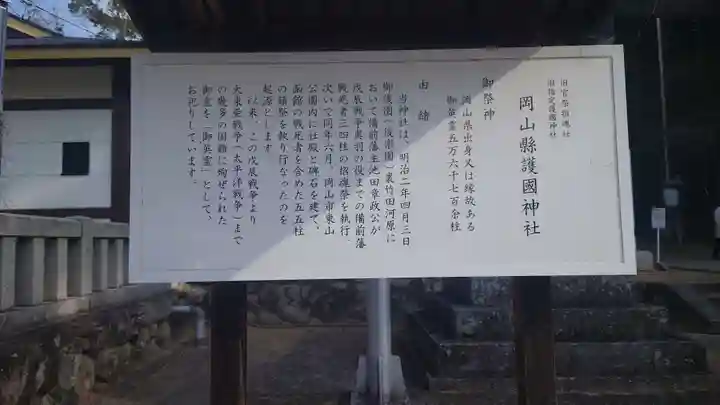 旧官祭招魂社
旧指定護國神社
岡山縣護國神社
御祭神
岡山県出身又は縁故ある
御英霊五万六千七百余柱
由緒
当神社は、明治二年四月三日
御後園(後楽園)裏竹田河原に
おいて備前藩主池田章政公が
戊辰戦争奥羽の役までの備前藩
戦死者三四柱の招魂祭を執行。
次いで同年六月、岡山市東山
公園内に社殿と碑石を建て、
函館の戦死者を含めた五五柱
の鎮祭を執り行なったのを
起源とします。
以来、この戊辰戦争より
大東亜戦争(太平洋戦争)まで
の幾多の国難に殉ぜられた
御霊を「御英霊」として、
お祀りしています。